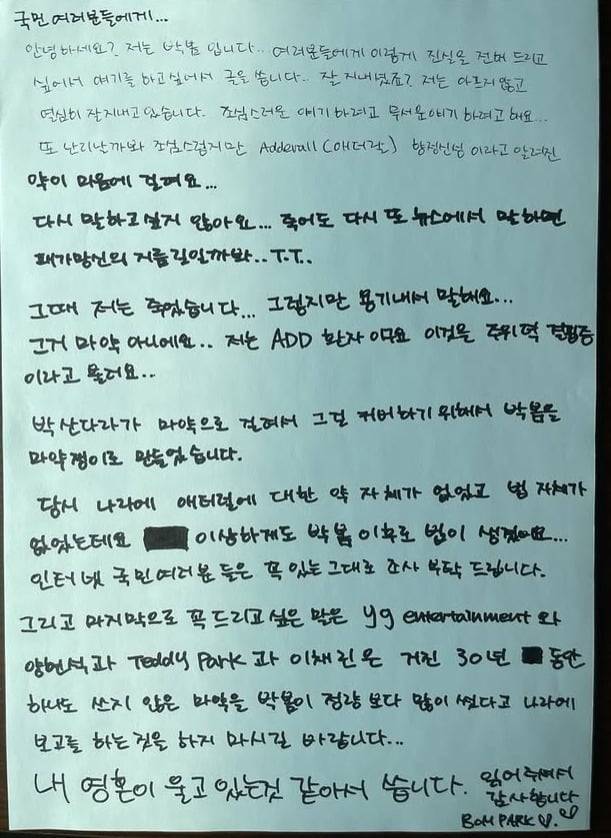 국민 여러분들에게...
안녕하세요? 저는 박봄 입니다... 여러분들에게 이렇게 진실을 전해 드리고
싶어서 얘기를 하고싶어서 글을 씁니다.. 잘 지내셨죠? 저는 아프지 않고
열심히 잘지내고 있습니다. 조심스러운 얘기 하려고 무서운 얘기 하려고 해요...
또 난리날까봐 조심스럽지만 Adderall (애더럴) 향정신성 이라고 알려진
약이 마음에 걸려요...
다시 말하고 싶지 않아요... 죽어도 다시 또 뉴스에서 말하면
패가망신의 지름길일까봐..T.T..
그때 저는 죽었습니다... 그렇지만 용기내서 말해요...
그거 마약 아니에요.. 저는 ADD 환자 이구요 이것을 주위력 결핍증
이라고 불러요..
박산다라가 마약으로 걸려서 그걸 커버하기 위해서 박봄을
마약쟁이로 만들었습니다.
당시 나라에 애더럴에 대한 약 자체가 없었고 법 자체가
없었는데요 이상하게도 박봄 이후로 법이 생겼어요...
인터넷 국민 여러분 들은 꼭 있는 그대로 조사 부탁 드립니다.
그리고 마지막으로 꼭 드리고 싶은 말은 yg entertainment 와
양현석과 Teddy Park 과 이채린은 거진 30년 동안
하나도 쓰지 않은 마약을 박봄이 정량 보다 많이 썼다고 나라에
보고를 하는것을 하지 마시길 바랍니다...
내 영혼이 울고 있는것 같아서 씁니다.
읽어 주셔서
감사합니다
BOM PARK♡.♡